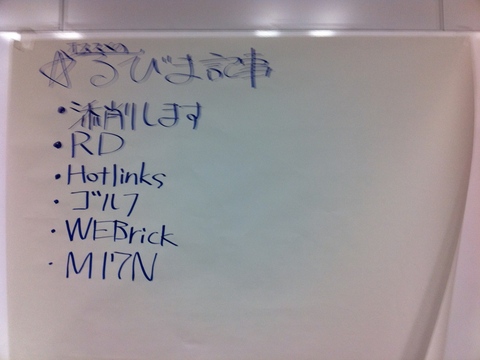 ☆るびま記事
・添削します
・RD
・Hotlinks
・ゴルフ
・WEBrick
・M17N